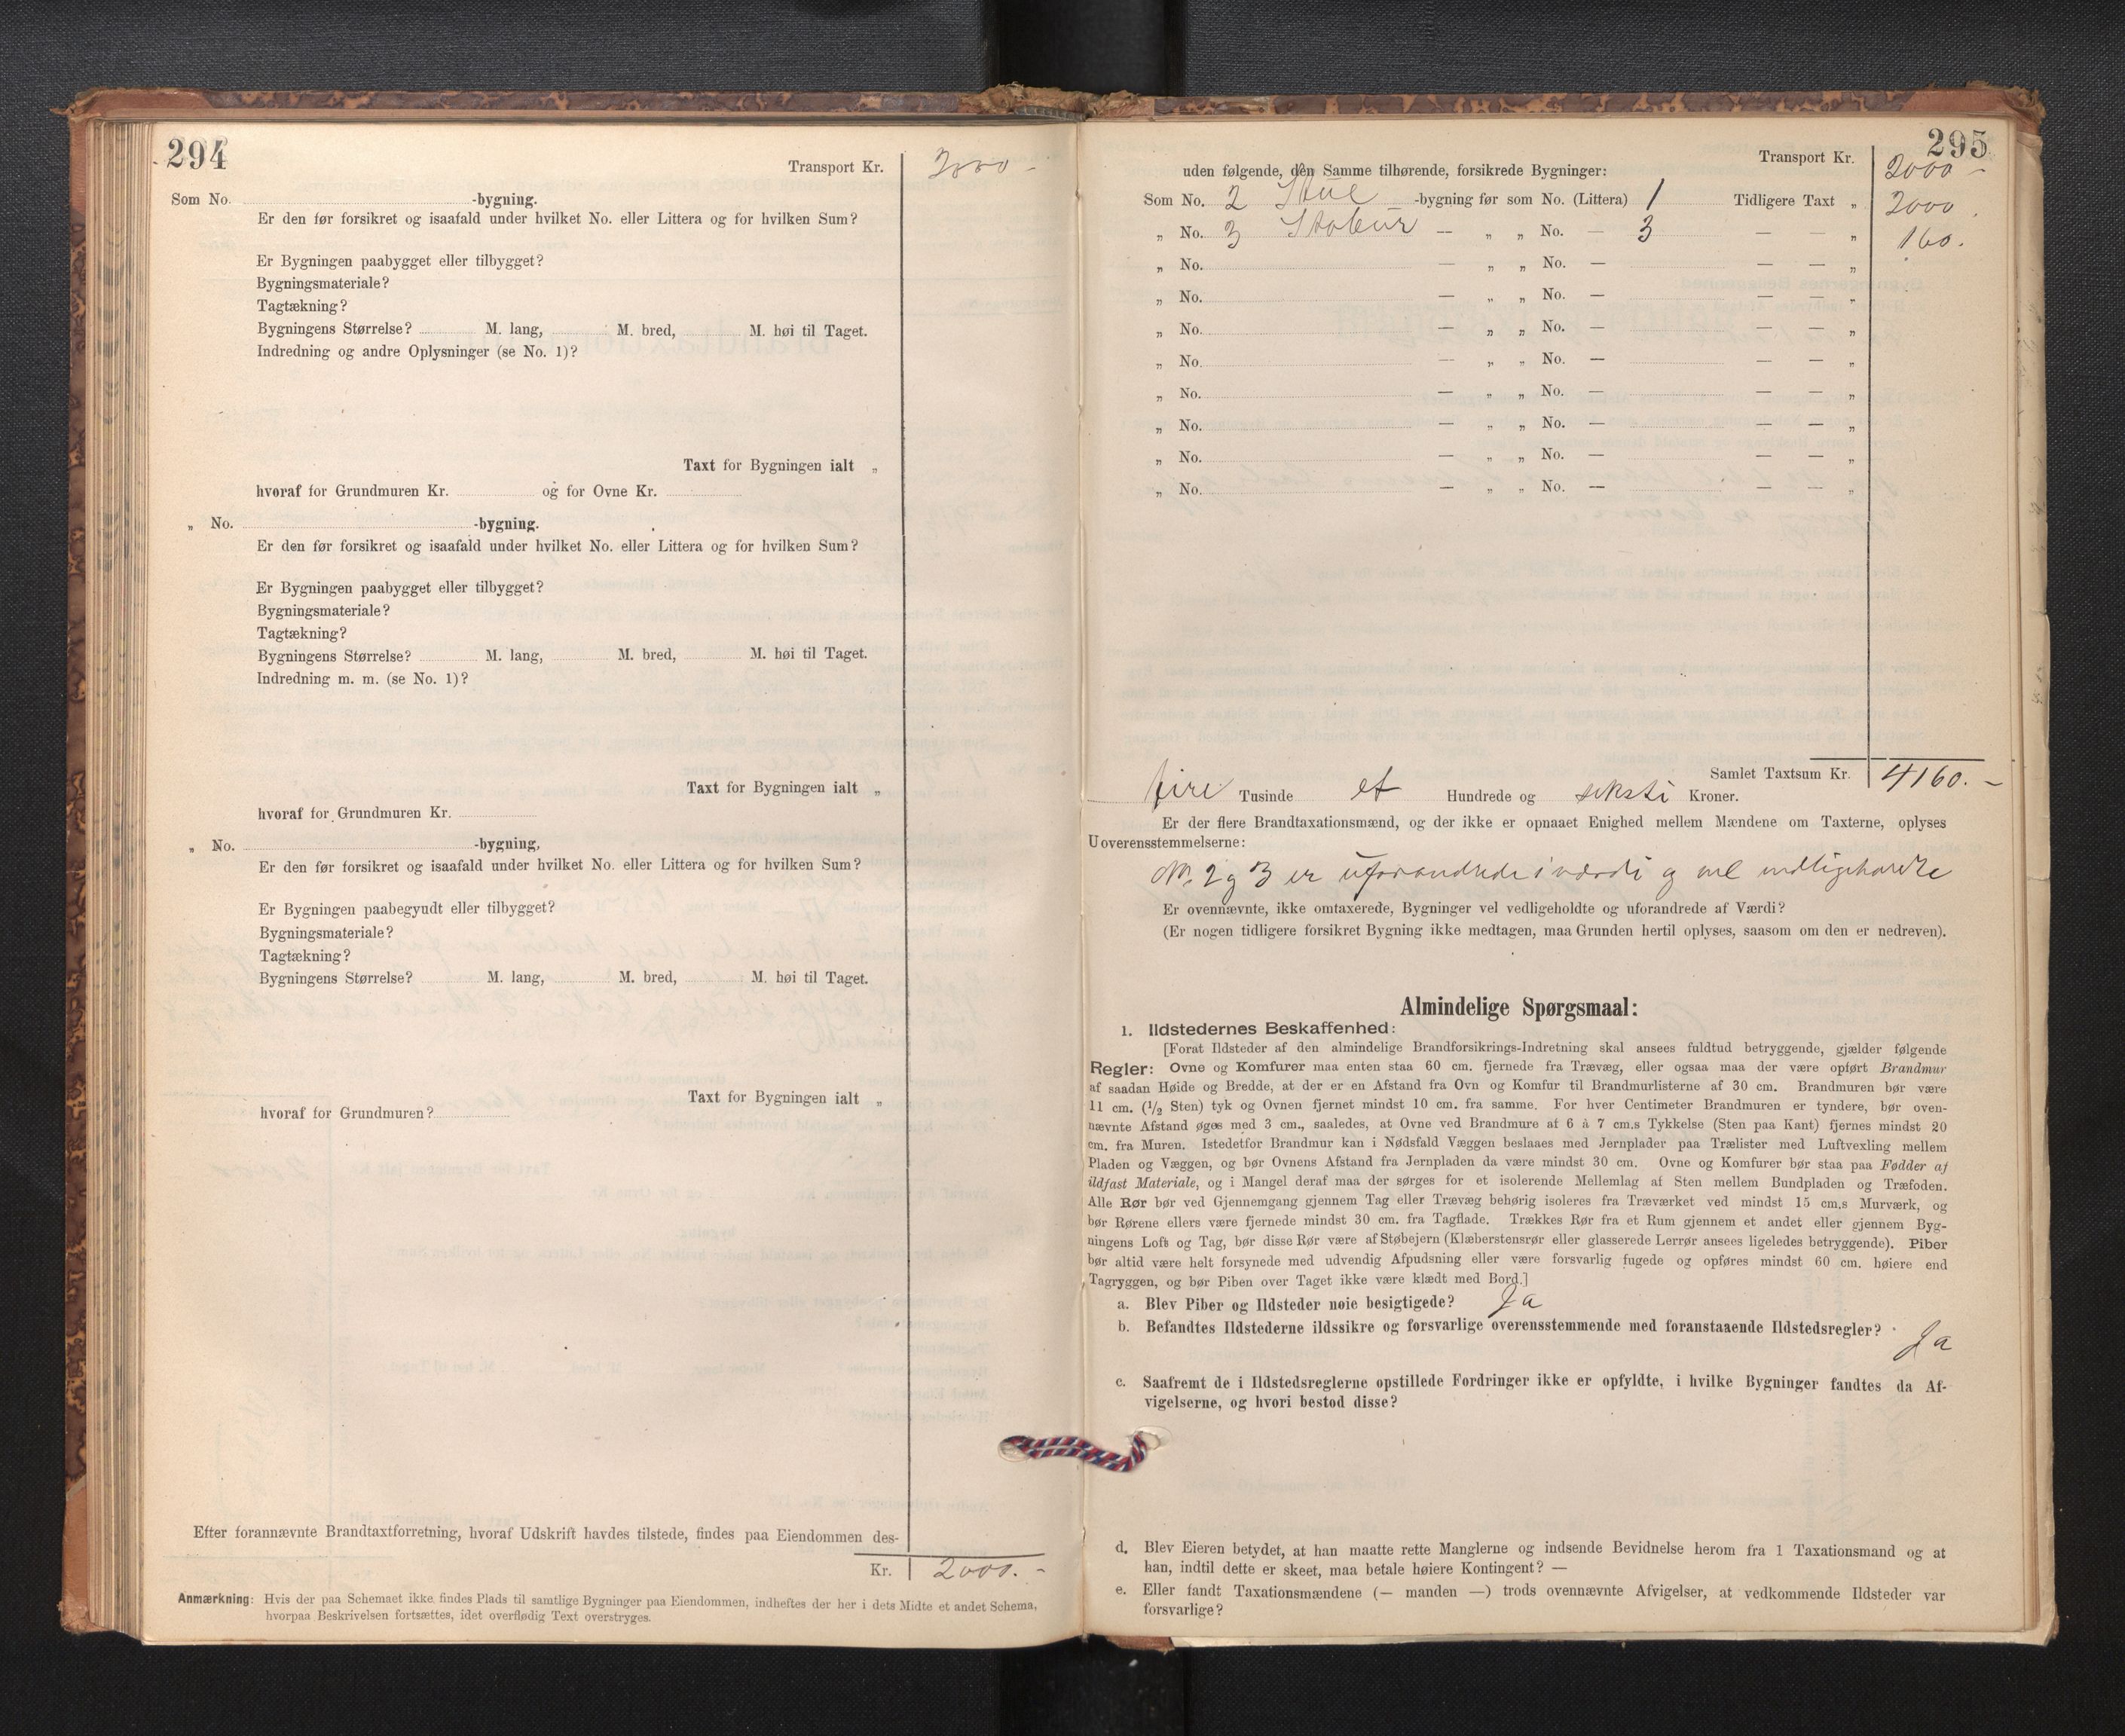 294
Transport Kr. 2000 -
Som No. -bygning.
Er den før forsikret og isaafald under hvilket No. eller Littera og for hvilken Sum?
Er Bygningen paabygget eller tilbygget?
Bygningsmateriale?
Tagtækning?
Bygningens Størrelse? M. lang, M. bred, M. høi til Taget.
Indredning og andre Oplysninger (se No. 1)?
Taxt for Bygningen ialt „
hvoraf for Grundmuren Kr. og for Ovne Kr.
„ No. -bygning.
Er den før forsikret og isaafald under hvilket No. eller Littera og for hvilken Sum?
Er Bygningen paabygget eller tilbygget?
Bygningsmateriale?
Tagtækning?
Bygningens Størrelse? M. lang, M. bred, M. høi til Taget.
Indredning m. m. (se No. 1)?
Taxt for Bygningen ialt „
hvoraf for Grundmuren Kr.
„ No. -bygning,
Er den før forsikret og isaafald under hvilket No. eller Littera og for hvilken Sum?
Er Bygningen paabegyndt eller tilbygget?
Bygningsmateriale?
Tagtækning?
Bygningens Størrelse? M. lang, M. bred, M. høi til Taget.
Taxt for Bygningen ialt „
hvoraf for Grundmuren?
Efter forannævnte Brandtaxtforretning, hvoraf Udskrift havdes tilstede, findes paa Eiendommen des-
Kr. 2000. -
Anmærkning: Hvis der paa Schemaet ikke findes Plads til samtlige Bygninger paa Eiendommen, indheftes der her i dets Midte et andet Schema,
hvorpaa Beskrivelsen fortsættes, idet overflødig Text overstryges.
295
Transport Kr. 2000 -
uden følgende, den Samme tilhørende, forsikrede Bygninger:
Som No. 2 Stue -bygning før som No. (Littera) 1 Tidligere Taxt „ 2000.
„ No. 3 Stabur — „ „ No. — 3 — — „ 160.
„ No. — „ „ No. — — — „
„ No. — „ „ No. — — — „
„ No. — „ „ No. — — — „
„ No. — „ „ No. — — — „
„ No. — „ „ No. — — — „
„ No. — „ „ No. — — — „
„ No. — „ „ No. — — — „
„ No. — „ „ No. — — — „
Samlet Taxtsum Kr. 4160. -
fire Tusinde et Hundrede og seksti Kroner.
Er der flere Brandtaxationsmænd, og der ikke er opnaaet Enighed mellem Mændene om Taxterne, oplyses
Uoverensstemmelserne:
No. 2 og 3 er uforandrede i værdi og vel vedligeholdte
Er ovennævnte, ikke omtaxerede, Bygninger vel vedligeholdte og uforandrede af Værdi?
(Er nogen tidligere forsikret Bygning ikke medtagen, maa Grunden hertil oplyses, saasom om den er nedreven).
Almindelige Spørgsmaal:
1. Ildstedernes Beskaffenhed:
[Forat Ildsteder af den almindelige Brandforsikrings-Indretning skal ansees fuldtud betryggende, gjælder følgende
Regler: Ovne og Komfurer maa enten staa 60 cm. fjernede fra Trævæg, eller ogsaa maa der være opført Brandmur
af saadan Høide og Bredde, at der er en Afstand fra Ovn og Komfur til Brandmurlisterne af 30 cm. Brandmuren bør være
11 cm. (1/2 Sten) tyk og Ovnen fjernet mindst 10 cm. fra samme. For hver Centimeter Brandmuren er tyndere, bør oven-
nævnte Afstand øges med 3 cm., saaledes, at Ovne ved Brandmure af 6 à 7 cm.s Tykkelse (Sten paa Kant) fjernes mindst 20
cm. fra Muren. Istedetfor Brandmur kan i Nødsfald Væggen beslaaes med Jernplader paa Trælister med Luftvexling mellem
Pladen og Væggen, og bør Ovnens Afstand fra Jernpladen da være mindst 30 cm. Ovne og Komfurer bør staa paa Fødder af
ildfast Materiale, og i Mangel deraf maa der sørges for et isolerende Mellemlag af Sten mellem Bundpladen og Træfoden.
Alle Rør bør ved Gjennemgang gjennem Tag eller Trævæg behørig isoleres fra Træværket ved mindst 15 cm.s Murværk, og
bør Rørene ellers være fjernede mindst 30 cm. fra Tagflade. Trækkes Rør fra et Rum gjennem et andet eller gjennem Byg-
ningens Loft og Tag, bør disse Rør være af Støbejern (Klæberstensrør eller glasserede Lerrør ansees ligeledes betryggende). Piber
bør altid være helt forsynede med udvendig Afpudsning eller være forsvarlig fugede og opføres mindst 60 cm. høiere end
Tagryggen, og bør Piben over Taget ikke være klædt med Bord.]
a. Blev Piber og Ildsteder nøie besigtigede? Ja
b. Befandtes Ildstederne ildssikre og forsvarlige overensstemmende med foranstaaende Ildstedsregler? Ja
c. Saafremt de i Ildstedsreglerne opstillede Fordringer ikke er opfyldte, i hvilke Bygninger fandtes da Af-
vigelserne, og hvori bestod disse?
d. Blev Eieren betydet, at han maatte rette Manglerne og indsende Bevidnelse herom fra 1 Taxationsmand og at
han, indtil dette er skeet, maa betale høiere Kontingent? —
e. Eller fandt Taxationsmændene (— manden —) trods ovennævnte Afvigelser, at vedkommende Ildsteder var
forsvarlige?